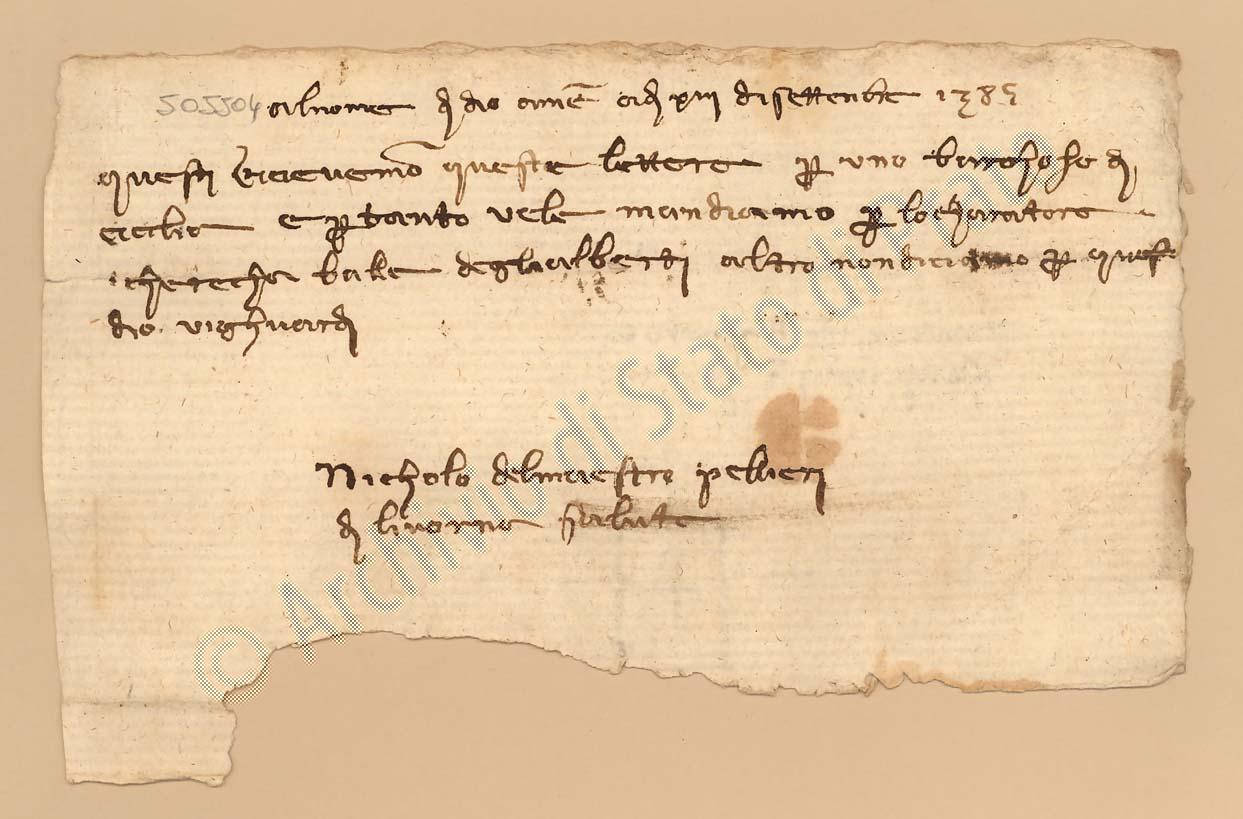 505504 alnome di dio amē adi xiii disettenbre 1385
questi riceuemō queste lettere per uno barchoso di
cicilia e pertanto uele mandiamo per lo
balle deglialberti altro nondiciamo per questa
dio. uighuardi
Nicholo delmaestro pellieri
di liuorno salute
© Archivio di Stato di Prato